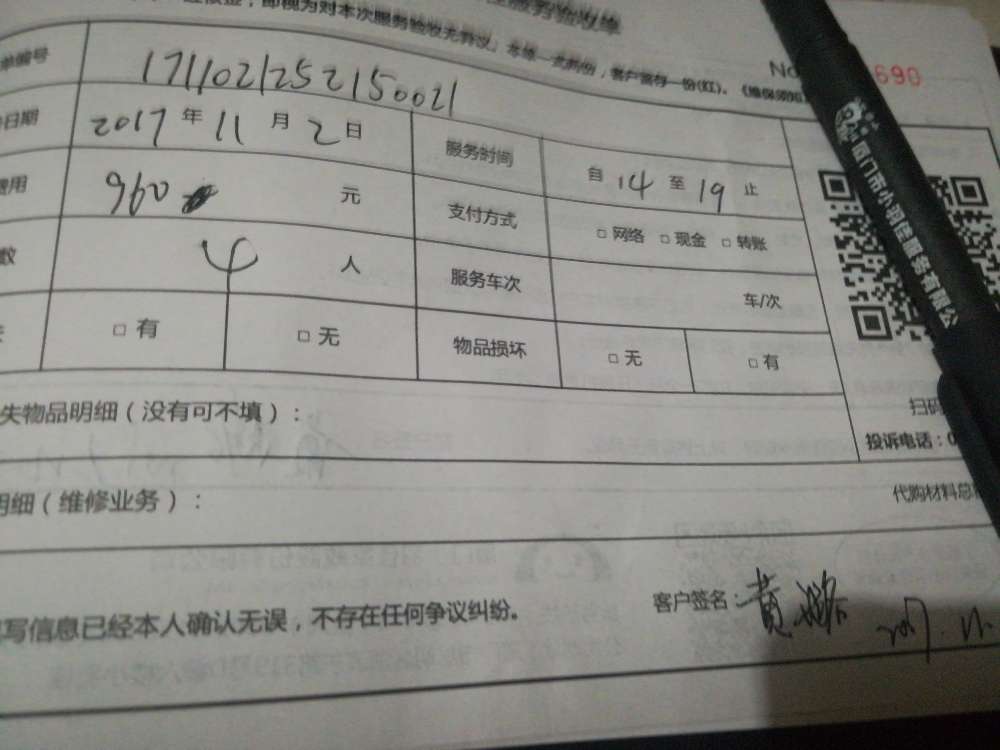 服务验收单
即视为对本次服务验收无异议。
客户留存一份(红)。
No 690
单编号 1711021252150021
日期 2017 年 11 月 2 日 服务时间 自 14 至 19 止
费用 960 元 支付方式 □ 网络 □ 现金 □ 转账
数 4 人 服务车次 车/次
□ 有 □ 无 物品损坏 □ 无 □ 有
厦门市小羽佳服务有限公
扫码
失物品明细（没有可不填）：
投诉电话：0
明细（维修业务）：
代购材料总
写信息已经本人确认无误，不存在任何争议纠纷。
客户签名： 黄